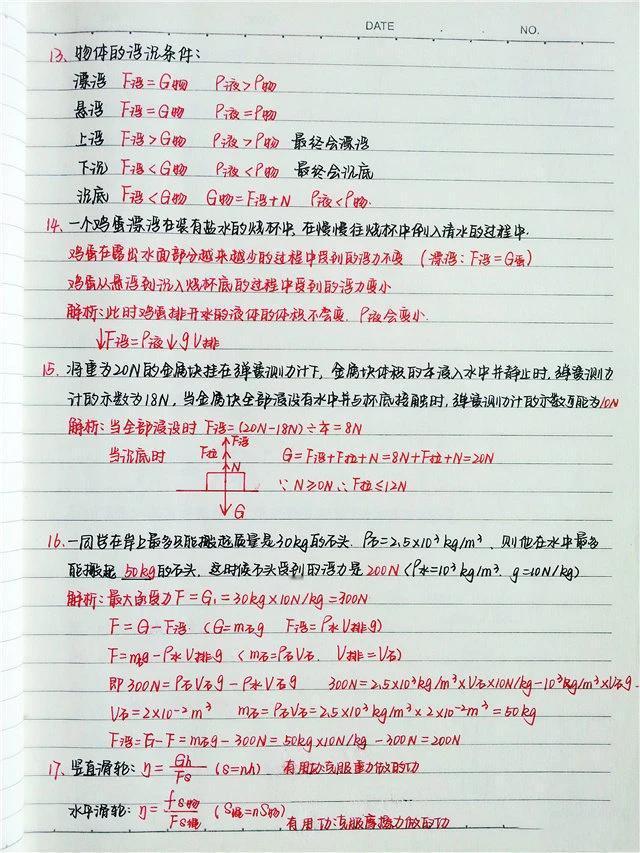 DATE
NO.
13、物体的浮沉条件：
漂浮 F浮=G物 ρ液>ρ物
悬浮 F浮=G物 ρ液=ρ物
上浮 F浮>G物 ρ液>ρ物 最终会漂浮
下沉 F浮<G物 ρ液<ρ物 最终会沉底
沉底 F浮<G物 G物=F浮+N ρ液<ρ物.
14、一个鸡蛋漂浮在装有盐水的烧杯中，在慢慢往烧杯中倒入清水的过程中.
鸡蛋在露出水面部分越来越少的过程中受到的浮力不变 (漂浮：F浮=G蛋)
鸡蛋从悬浮到沉入烧杯底的过程中受到的浮力变小
解析：此时鸡蛋排开水的液体的体积不会变，ρ液会变小.
↓F浮=ρ液↓gV排
15、将重为20N的金属块挂在弹簧测力计下，金属块体积的 浸入水中并静止时，弹簧测力
计的示数为18N，当金属块全部浸没有水中并与杯底接触时，弹簧测力计的示数可能为10N
解析：当全部浸没时 F浮=(20N-18N)÷ =8N
F浮
当沉底时 F拉 G=F浮+F拉+N=8N+F拉+N=20N
N ∵N≥0N ∴F拉≤12N
G
16、一同学在岸上最多只能搬起质量是30kg的石头. ρ石=2.5×10³kg/m³，则他在水中最多
能搬起 50kg的石头，这时候石头受到的浮力是200N (ρ水=10³kg/m³. g=10N/kg)
解析：最大的臂力F=G₁=30kg×10N/kg=300N
F=G-F浮 (G=m石g F浮=ρ水V排g)
F=m石g-ρ水V排g (m石=ρ石V石. V排=V石)
即300N=ρ石V石g-ρ水V石g 300N=2.5×10³kg/m³×V石×10N/kg-10³kg/m³×V石g.
V石=2×10⁻²m³ m石=ρ石V石=2.5×10³kg/m³×2×10⁻²m³=50kg
F浮=G-F=m石g-300N=50kg×10N/kg-300N=200N
17、竖直滑轮：η=Gh/Fs (s=nh) 有用功克服重力做的功
水平滑轮：η=fs物/Fs绳 (S绳=nS物) 有用功克服摩擦力做的功